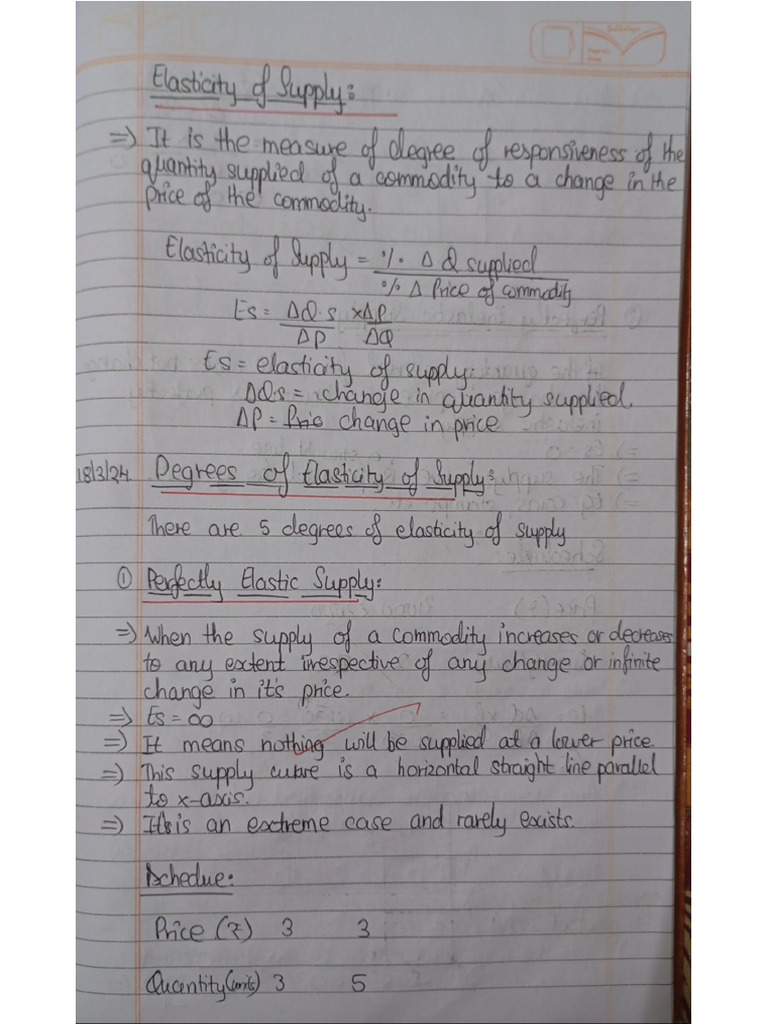 Elasticity of Supply:
=> It is the measure of degree of responsiveness of the
quantity supplied of a commodity to a change in the
price of the commodity.
Elasticity of Supply = % Δ Q supplied
% Δ Price of commodity
Es = ΔQ.s x ΔP
ΔP ΔQ
Es = elasticity of supply.
ΔQ.s = change in quantity supplied.
ΔP = Pric change in price
18/3/24 Degrees of Elasticity of Supply:
There are 5 degrees of elasticity of supply
① Perfectly Elastic Supply:
=> When the supply of a commodity increases or decreases
to any extent irrespective of any change or infinite
change in it's price.
=> Es = ∞
=> It means nothing will be supplied at a lower price.
=> This supply cubre is a horizontal straight line parallel
to x-axis.
=> It's is an extreme case and rarely exists.
Schedue:
Price (₹) 3 3
Quantity (units) 3 5